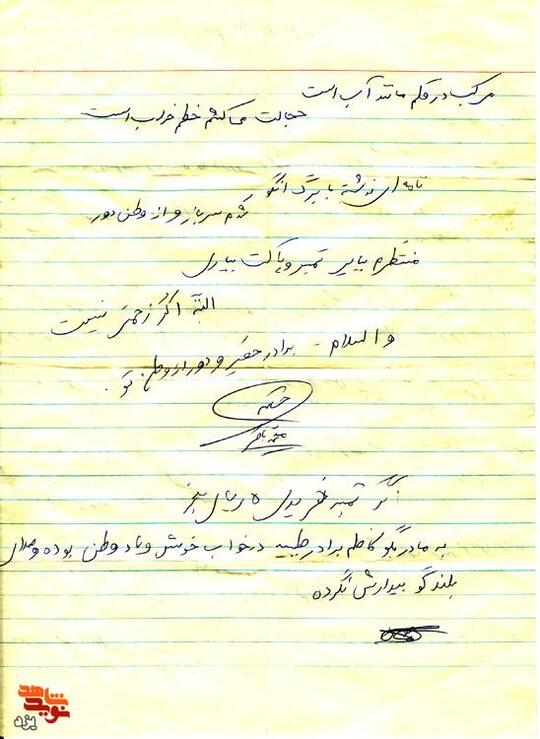 مرکب در قلم مانند آب است
خجالت میکشم خطم خراب است
نامه ای نوشتم با برگ انگور
شدم سرباز و از وطن دور
منتظرم بیایی تمبر و پاکت بیاری
البته اگر زحمتی نیست
والسلام - برادر حقیر و دور از وطن تو.
اگر تمبر خریدی ۵ ریالی بخر
به مادر بگو کاظم برادر طیبه در خواب خوش و یاد وطن بوده و صدای
بلندگو بیدارش نکرده
نوید شاهد
یزد